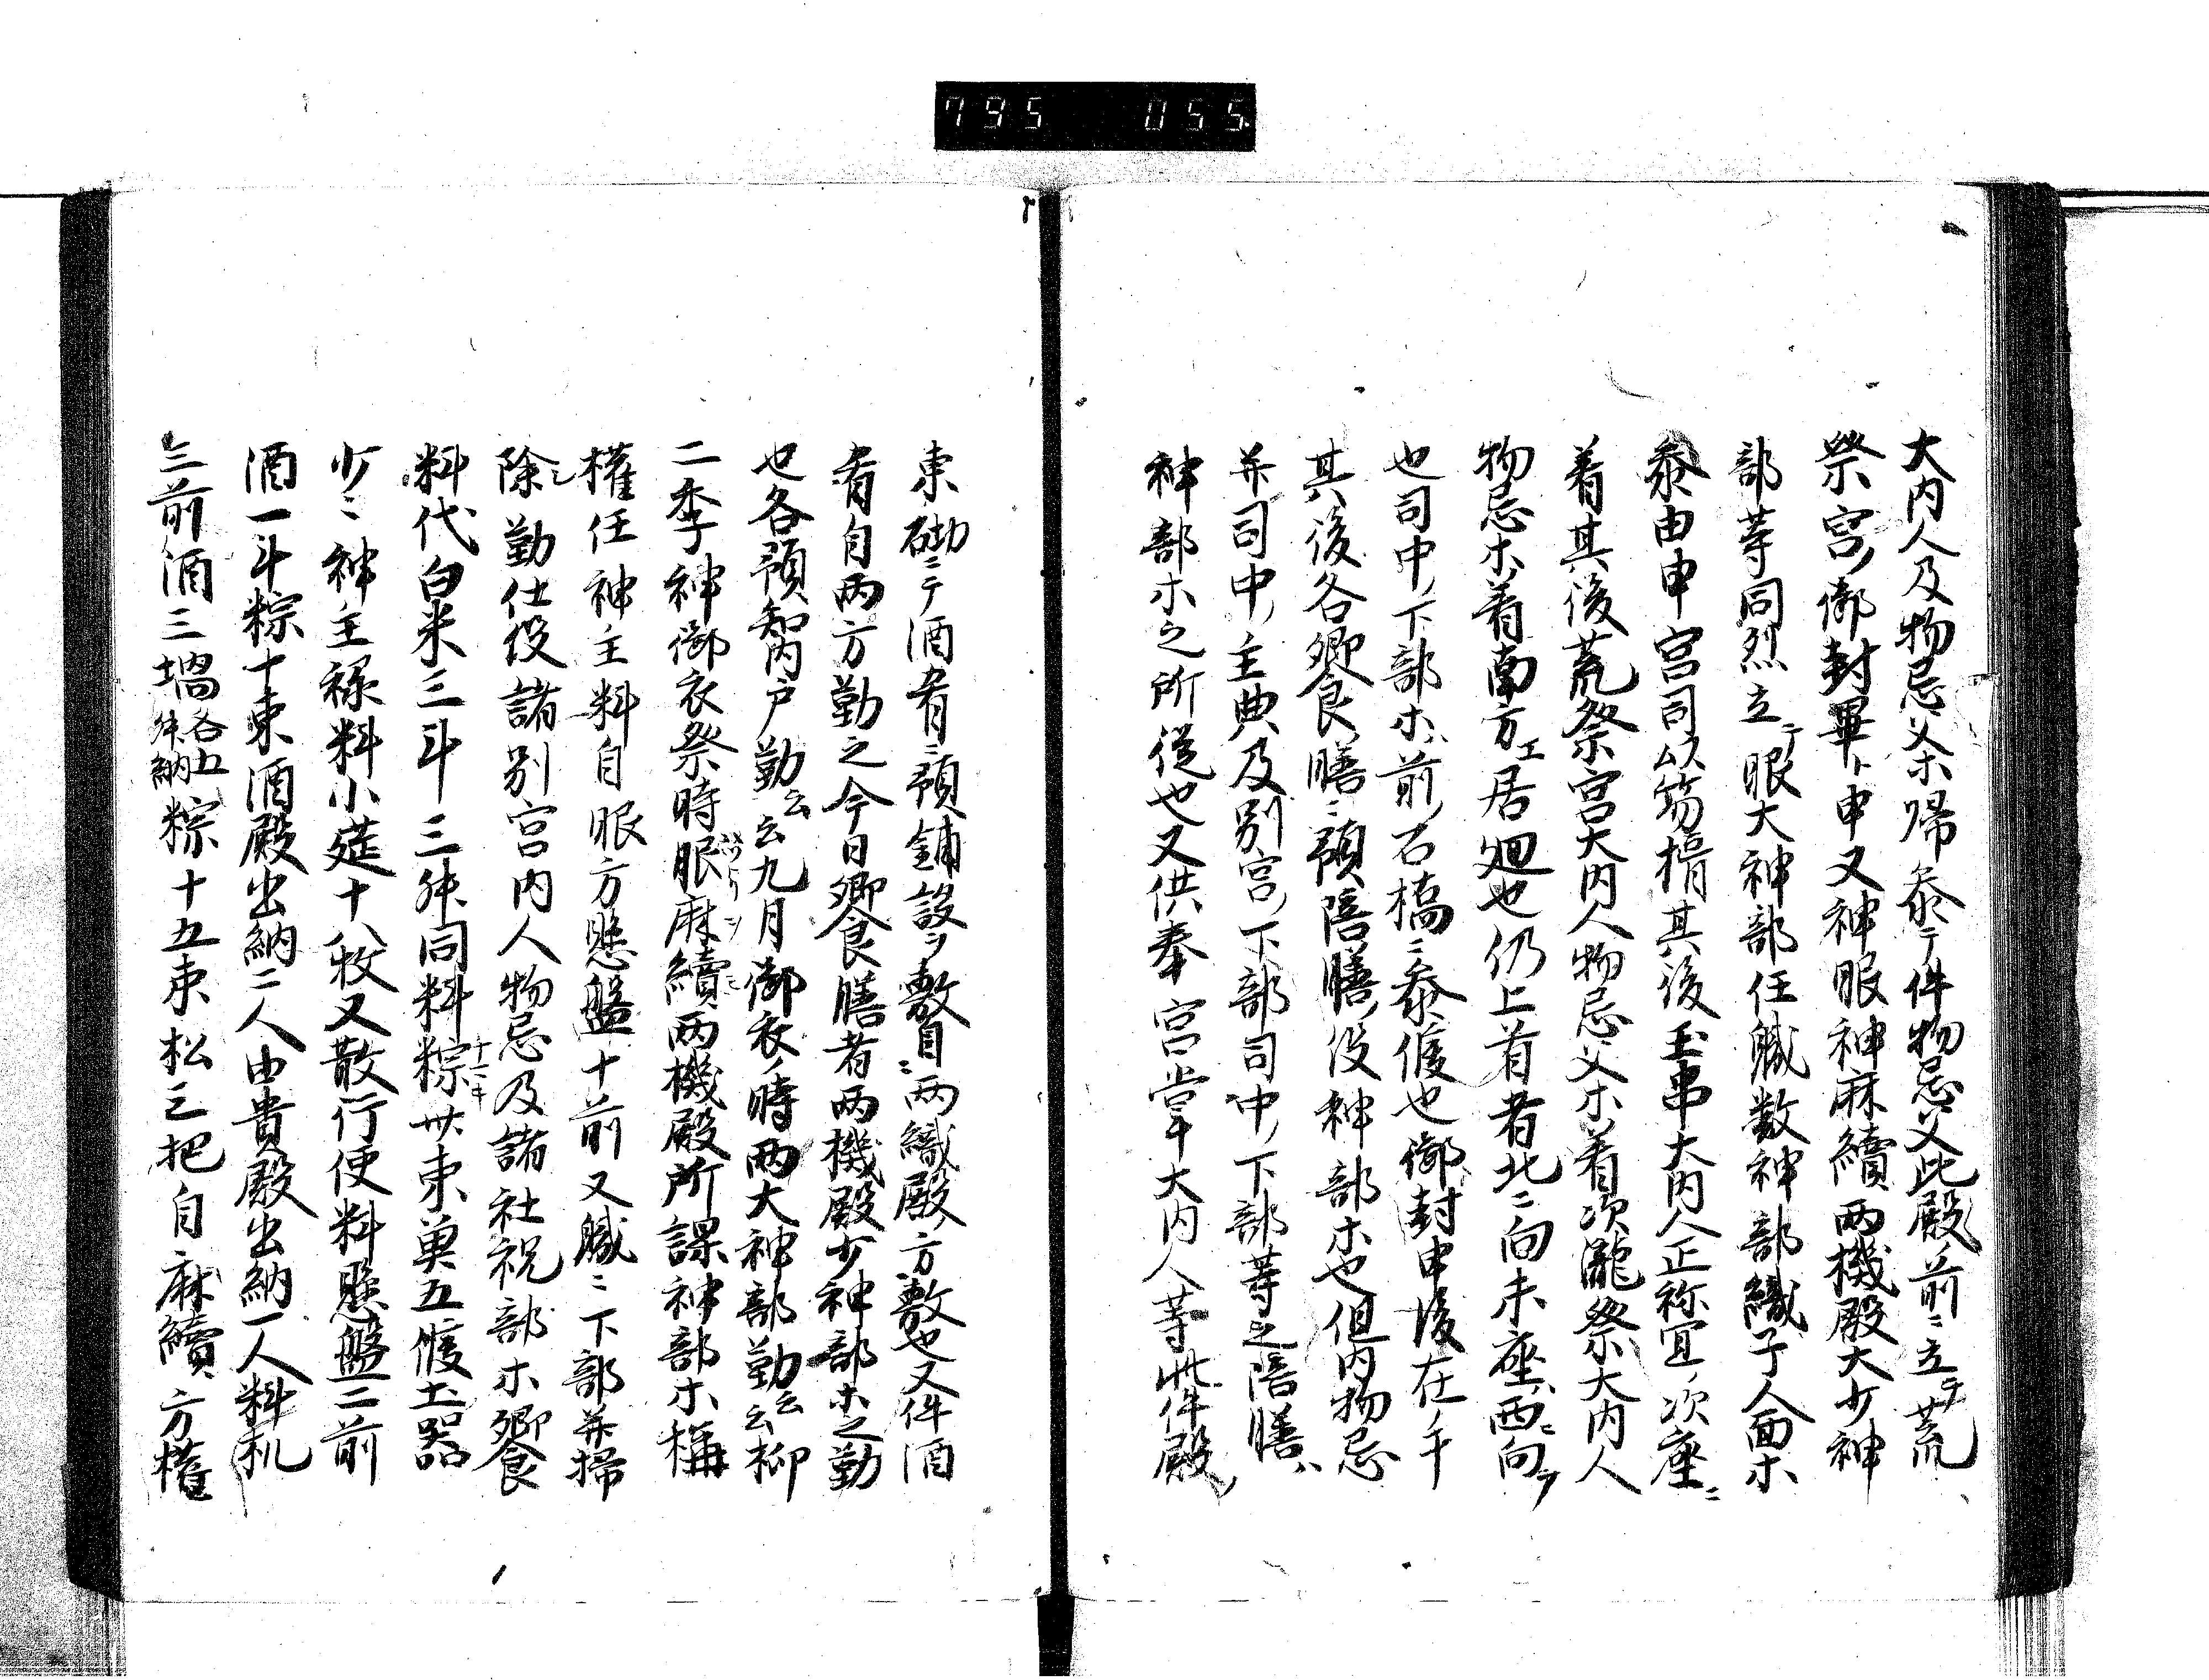 795 055
大内人及物忌父ホ帰参テ件物忌父此殿前ニ立テ荒
祭宮ノ御封畢ト申又神服神麻續両機殿大少神
部等同烈立テ服大神部任軄数神部織子人面ホ
参由申宮司以笏揖其後玉串大内人正祢宜ノ次座ニ
着其後荒祭宮大内人物忌父ホ着次瀧祭大内人
物忌ホ着南方エ居廻也仍上首者北ニ向末座ハ西ニ向フ
也司中ノ下部ホ前ノ石橋ニ参候也御封申後在手
其後各饗膳ニ預陪膳ノ役神部ホ也但内物忌
并司中ノ主典及別宮ノ下部司中ノ下部等之陪膳ハ
神部ホ之所從也又供奉宮掌大内人等此件殿ノ
東砌ニテ酒肴ニ預鋪設ヲ敷目ニ両織殿ノ方敷也又件酒
肴自両方勤之今日饗膳者両機殿少神部ホ之勤
也各預智内戸勤云云九月御衣ノ時両大神部勤云云抑
二季神御衣祭時服麻續両機殿所課神部ホ稱
權任神主料自服方懸盤十前又軄ニ下部并掃
除シ勤仕役諸別宮内人物忌及諸社祝部ホ饗
料代白米三斗三舛同料粽卅束菓五候土器
少々神主禄料小莚十八枚又散行使料懸盤二前
酒一斗粽十束酒殿出納二人由貴殿出納一人料机
三前酒三堝各五舛納粽十五束松三把自麻續方權